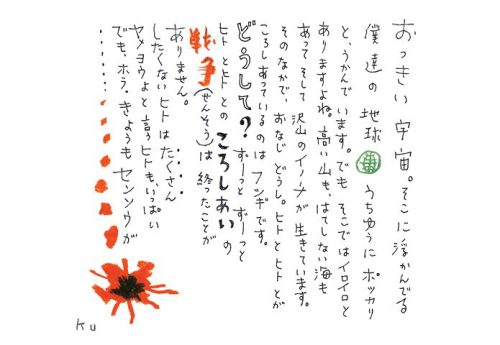 おっきい宇宙。そこに浮かんでる
僕達の地球 うちゅうに ポッカリ
と、うかんでいます。でも そこではイロイロと
ありますよね。高い山も、はてしない海も
あって そして 沢山のイノチが 生きています。
そのなかで、おなじ どうし。ヒトとヒトとが
ころしあっているのは フシギです。
どうして?ずーっと ずーっと
ヒトとヒトとの ころしあいの
戦争(せんそう)は 終ったことが
ありません。
したくないヒトは たくさん
ヤメヨウよと言うヒトも、いっぱい
でも、ホラ。きょうも センソウが
Ku